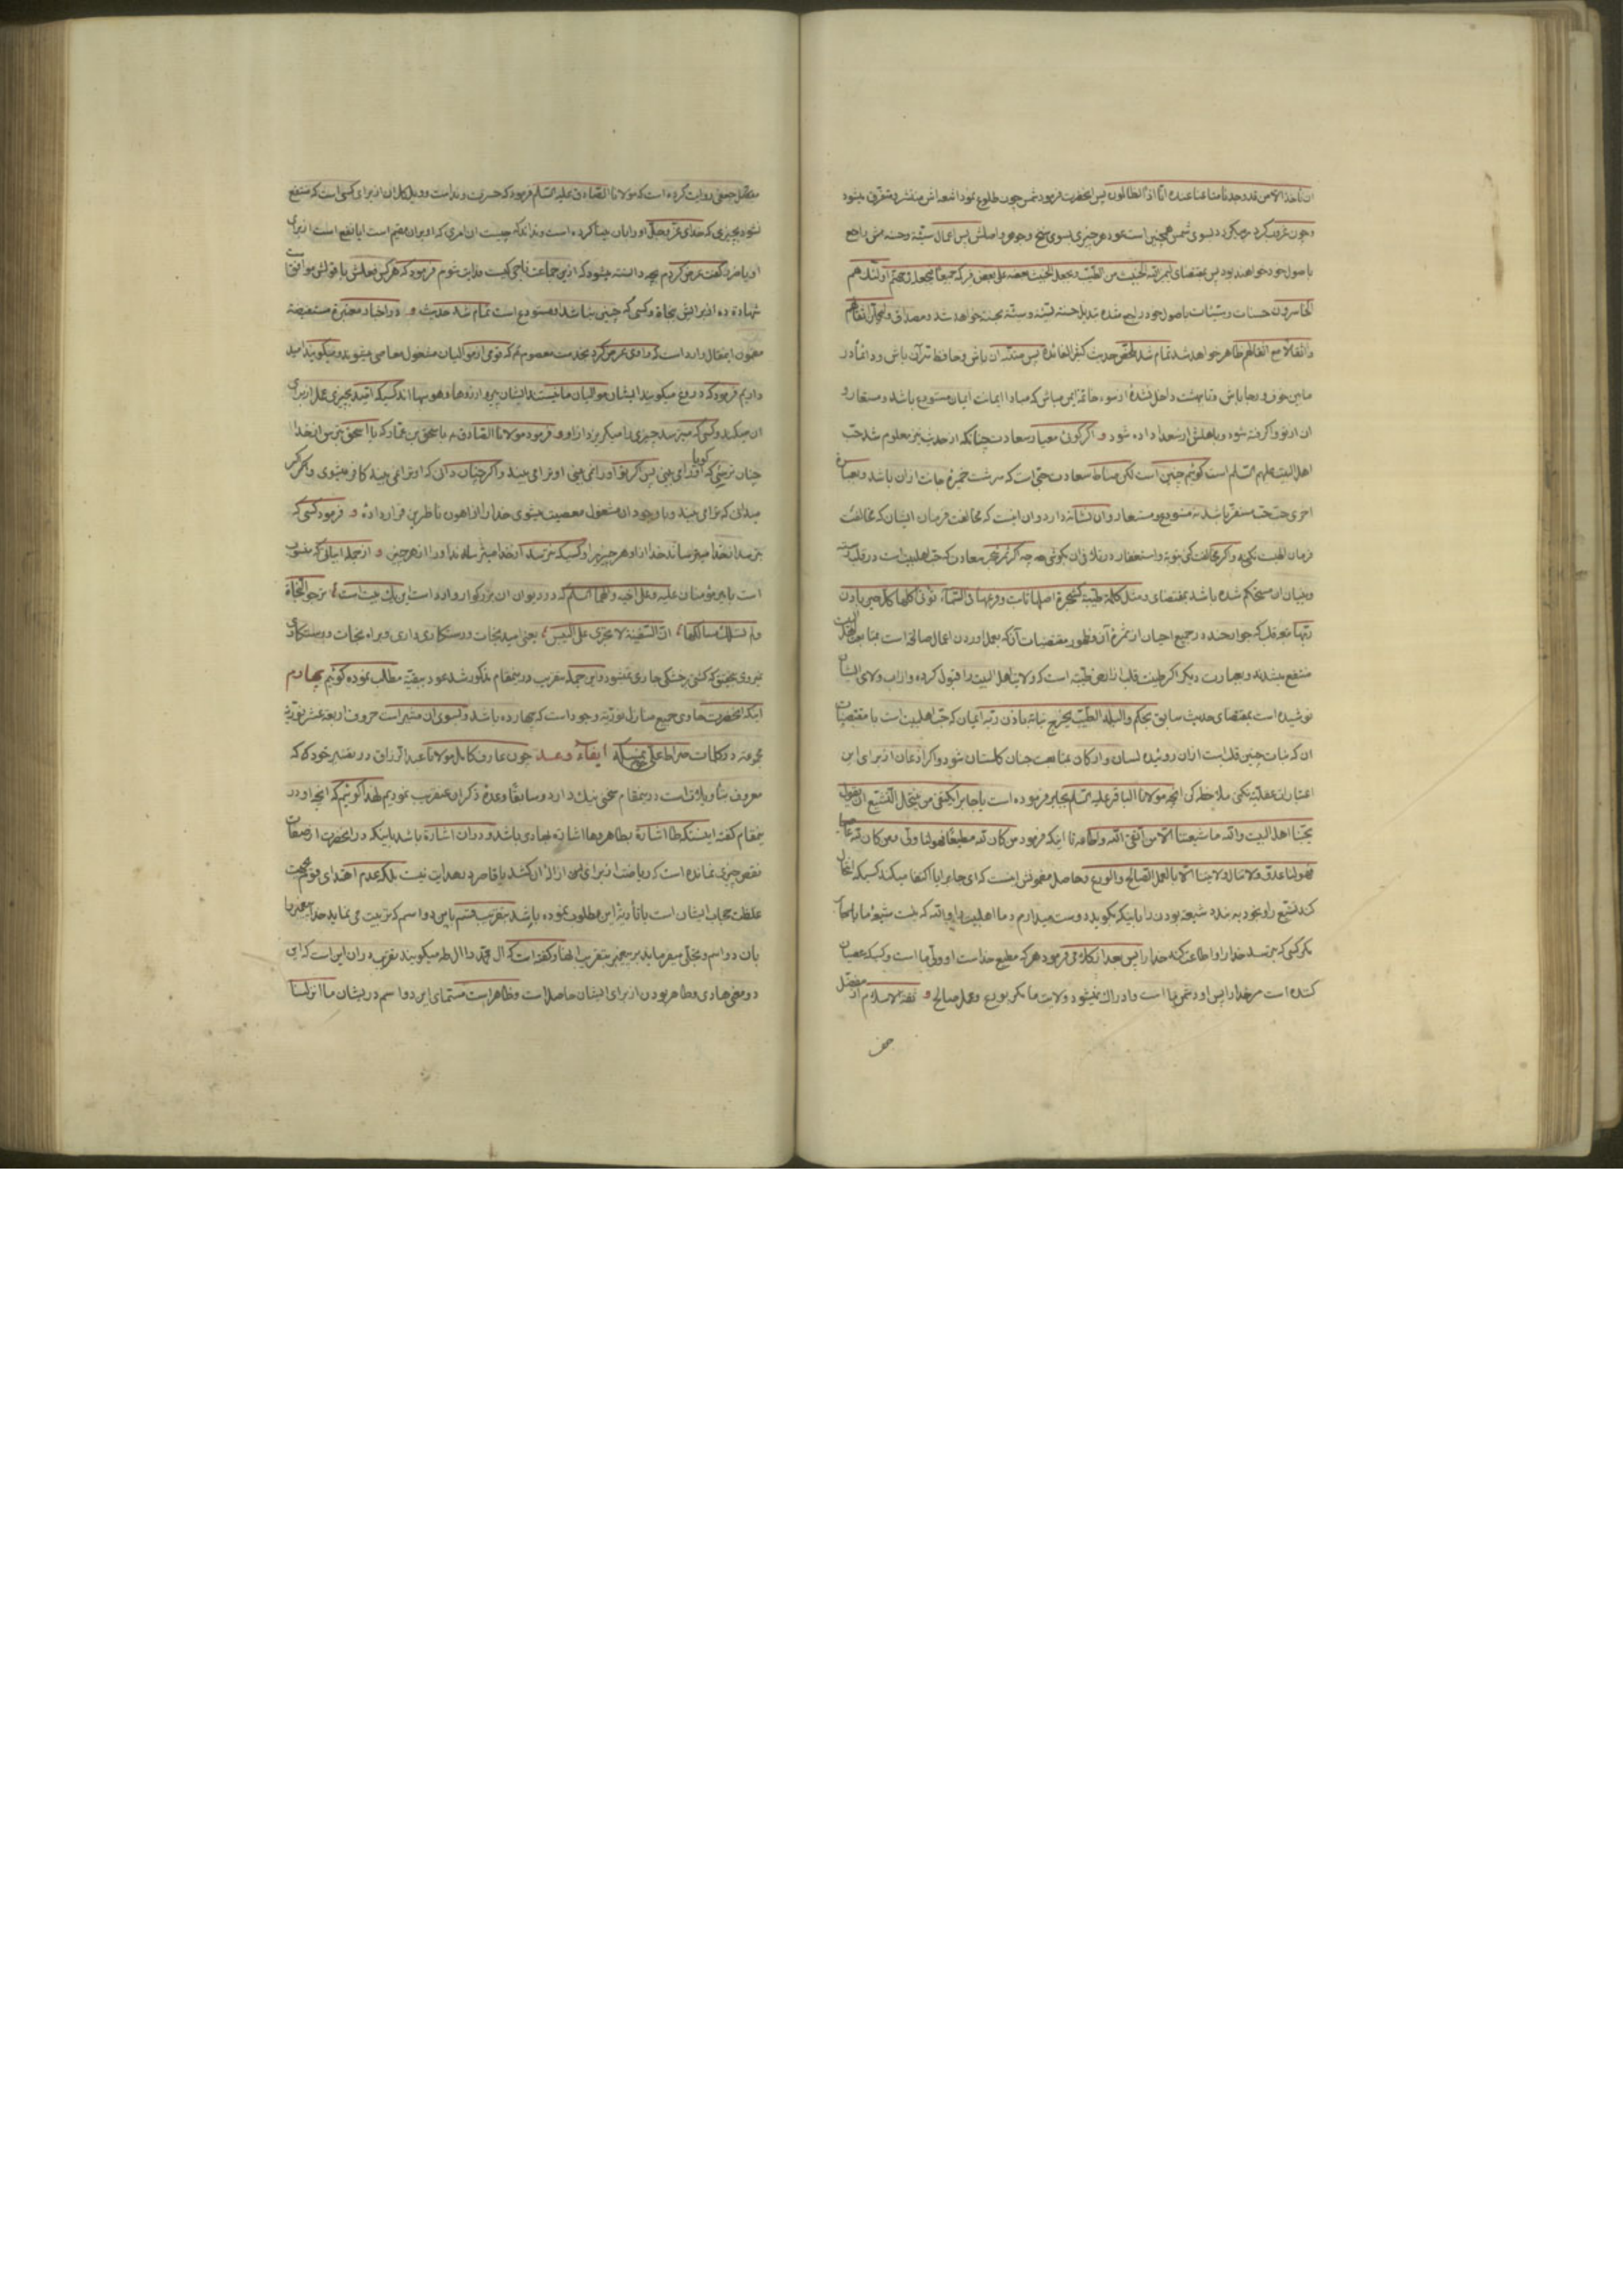 ان ناخذ الا من قد وجدنا متاعنا عنده انا اذا لظالمون پس انحضرت فرمود شمس چون طلوع نمود اشعه اش منتشر و متفرق میشود
و چون غروب کرد بسوی شمس همچنین است عود هر چیزی بسوی سنخ و جوهر و اصلش پس اعمال سیئه و حسنه راجع
باصول خود خواهند بود پس بمقتضای لیمیز الله الخبیث من الطیب و یجعل الخبیث بعضه علی بعض فیرکمه جمیعا فیجعله فی جهنم اولئک هم
الخاسرون حسنات و سیئات باصول خود راجع شده تبدیل حسنه بسیئه و سیئه بحسنه خواهد شد و مصداق و لیحملن اثقالهم
و اثقالا مع اثقالهم ظاهر خواهد شد تمام شد ملخص حدیث کثیر الفائده پس متنبه ان باش و حافظ بر ان باش و دائما در
مابین خوف و رجا باش و تا بهشت داخل نشدهٔ از سوء خاتمه ایمن مباش که مبادا ایمانت ایمان مستودع باشد و مستعار و
ان از تو واکرفته شود و باهلش داده شود و اکر کوئی معیار سعادت چنانکه از حدیث نیز معلوم شد حب
اهل البیت علیهم السلام است کوئیم چنین است لکن مناط سعادت حبی است که سرشت خمیرهٔ جانت از ان باشد و بعبارة
اخری حب حب مستقر باشد نه مستودع و مستعار و ان نشانه دارد و ان اینست که مخالفت فرمان ایشان که مخالفت
فرمان الهیست نکنی و اکر مخالفت کنی توبه و استغفار در تلافی ان بکوشی چه اکر شجر سعادت که حب اهلبیت است در قلب
و بنیان ان مستحکم شده باشد بمقتضای و مثل کلمة طیبة کشجرة اصلها ثابت و فرعها فی السماء تؤتی اکلها کل حین باذن
ربها نیز قلب که جوارحند در جمیع احیان از ثمرهٔ ان و ظهور مقتضیات ان که بعمل اوردن اعمال صالحه است
منتفع میشدند و بعبارت دیکر اکر طینت قلب از اراضی طیبه است که ولایت اهل البیت را قبول کرده و از اب ولای ایشان
نوشیده است بمقتضای حدیث سابق بحکم و البلد الطیب یخرج نباته باذن ربه ایمان که حب اهلبیت است با مقتضیات
ان که نبات چنین قلبیست از ان روئیده لسان و ارکان بمتابعت جنان کلستان شود و اکر اذعان از برای این
اعتبارات عقلیه نکنی ملاحظه کن انچه مولانا الباقر علیه السلام بجابر فرموده است یا جابر ایکتفی من ینتحل التشیع ان یقول
بحبنا اهل البیت و الله ما شیعتنا الا من اتقی الله و اطاعه تا اینکه فرمود من کان لله مطیعا فهو لنا ولی و من کان لله عاصیا
فهو لنا عدو و لا تنال ولایتنا الا بالعمل الصالح و الورع و حاصل مضمونش اینست که ای جابر ایا اکتفا میکند کسیکه انتحال
کند تشیع را و بخود به بندد شیعه بودن را باینکه بکوید دوست میدارم ما اهلبیت را و الله که نیست شیعهٔ ما
مکر کسی که بترسد خدا را و اطاعت کند خدا را پس بعد از کلامی فرمود هر که مطیع خداست او ولی ما است و کسیکه عصیان
کننده است مر خدا را پس او دشمن ما است و ادراک نمیشود ولایت ما مکر بورع و عمل صالح و ثقة الاسلام از مفضل
جعف
مفضل جعفی روایت کرده است که مولانا الصادق علیه السلام فرمود که حسرت و ندامت و ویل کل ان از برای کسی است که منتفع
نشود بچیزی که خدای عز و جل او را بان بینا کرده است و نداند که چیست ان امری که او بران مقیم است ایا نفع است از برای
او یا ضرر کفت عرض کردم بچه دانسته میشود که ازین جماعت ناجی کیست فدایت شوم فرمود که هر کس فعلش با قولش موافقست
شهادة ده از برایش بنجاة و کسی که چنین نباشد او مستودع است تمام شد حدیث و در اخبار معتبرة مستفیضه
مضمون این مقال وارد است که راوی عرض کرد بخدمت معصوم که قومی از موالیان مشغول معاصی میشوند و میکویند امید
داریم فرمود که دروغ میکویند ایشان موالیان ما نیستند ایشان پیرو ارزوها و هوسها اند کسیکه امید بچیزی عمل از برای
ان میکند و کسی که میترسد چیزی را میکریزد از او و فرمود مولانا الصادق باسحق بن عمار که یا اسحق بترس از خدا
چنان ترسی که کویا او را می بینی پس اکر تو او را نمی بینی او ترا می بیند و اکر چنان دانی که او ترا نمی بیند کافر میشوی و اکر
میدانی که ترا می بیند و با وجود ان مشغول معصیت میشوی خدا را از اهون ناظرین قرار دادهٔ و فرمود کسی که
بترسد از خدا میترساند خدا از او هر چیز را و کسیکه نترسد از خدا میترساند او را از هر چیز و از جمله ابیاتی که منسوب
است بامیر مؤمنان علیه و علی اخیه و الهما السلام که در دیوان ان بزرکوار وارد است این یک بیت است ترجو النجاة
و لم تسلک مسالکها ان السفینة لا تجری علی الیبس یعنی امید نجات و رستکاری داری و براه نجات و رستکاری
نمیروی بتحقیق که کشتی بر خشکی جاری نمیشود و این جمله بتقریب درینمقام مذکور شد عود ببقیه مطالب نموده کوئیم چهارم
اینکه انحضرت حاوی جمیع منازل نوریه وجود است که چهارده باشد و بسوی ان مشیر است حروف اربعة عشر نورانیه
مجموعه در کلمات صراط علی حق نمسکه ایفاء وعد چون عارف کامل مولانا عبد الرزاق در تفسیر خود که که
معروف بتاویلاتست درینمقام سخنی نیک دارد و سابقا وعدهٔ ذکر ان عنقریب نمودیم لهذا کوئیم که انچه او در
ینمقام کفته اینستکه طا اشارة بطاهر و ها اشارة بهادی باشد و دران اشارة باشد باینکه در انحضرت از صفات
نقص چیزی نمانده است که ریاضت از برای از الهٔ ان کشد یا قاصر در هدایت نیست بلکه عدم اهتدای قوم بجهت
غلظت حجاب ایشان است با تأویل این مطلوب نموده باشد بتقریب قسم باین دو اسم که تربیت می نماید خدا پیغمبر را
بان دو اسم و تجلی میفرماید بر پیغمبر بتقریب الها و کفته است که ال محمد را ال طه میکویند تقریب دران این است که این
دو معنی هادی و طاهر بودن از برای ایشان حاصل است و ظاهر است مسمای این دو اسم در یشان ما انزلنا